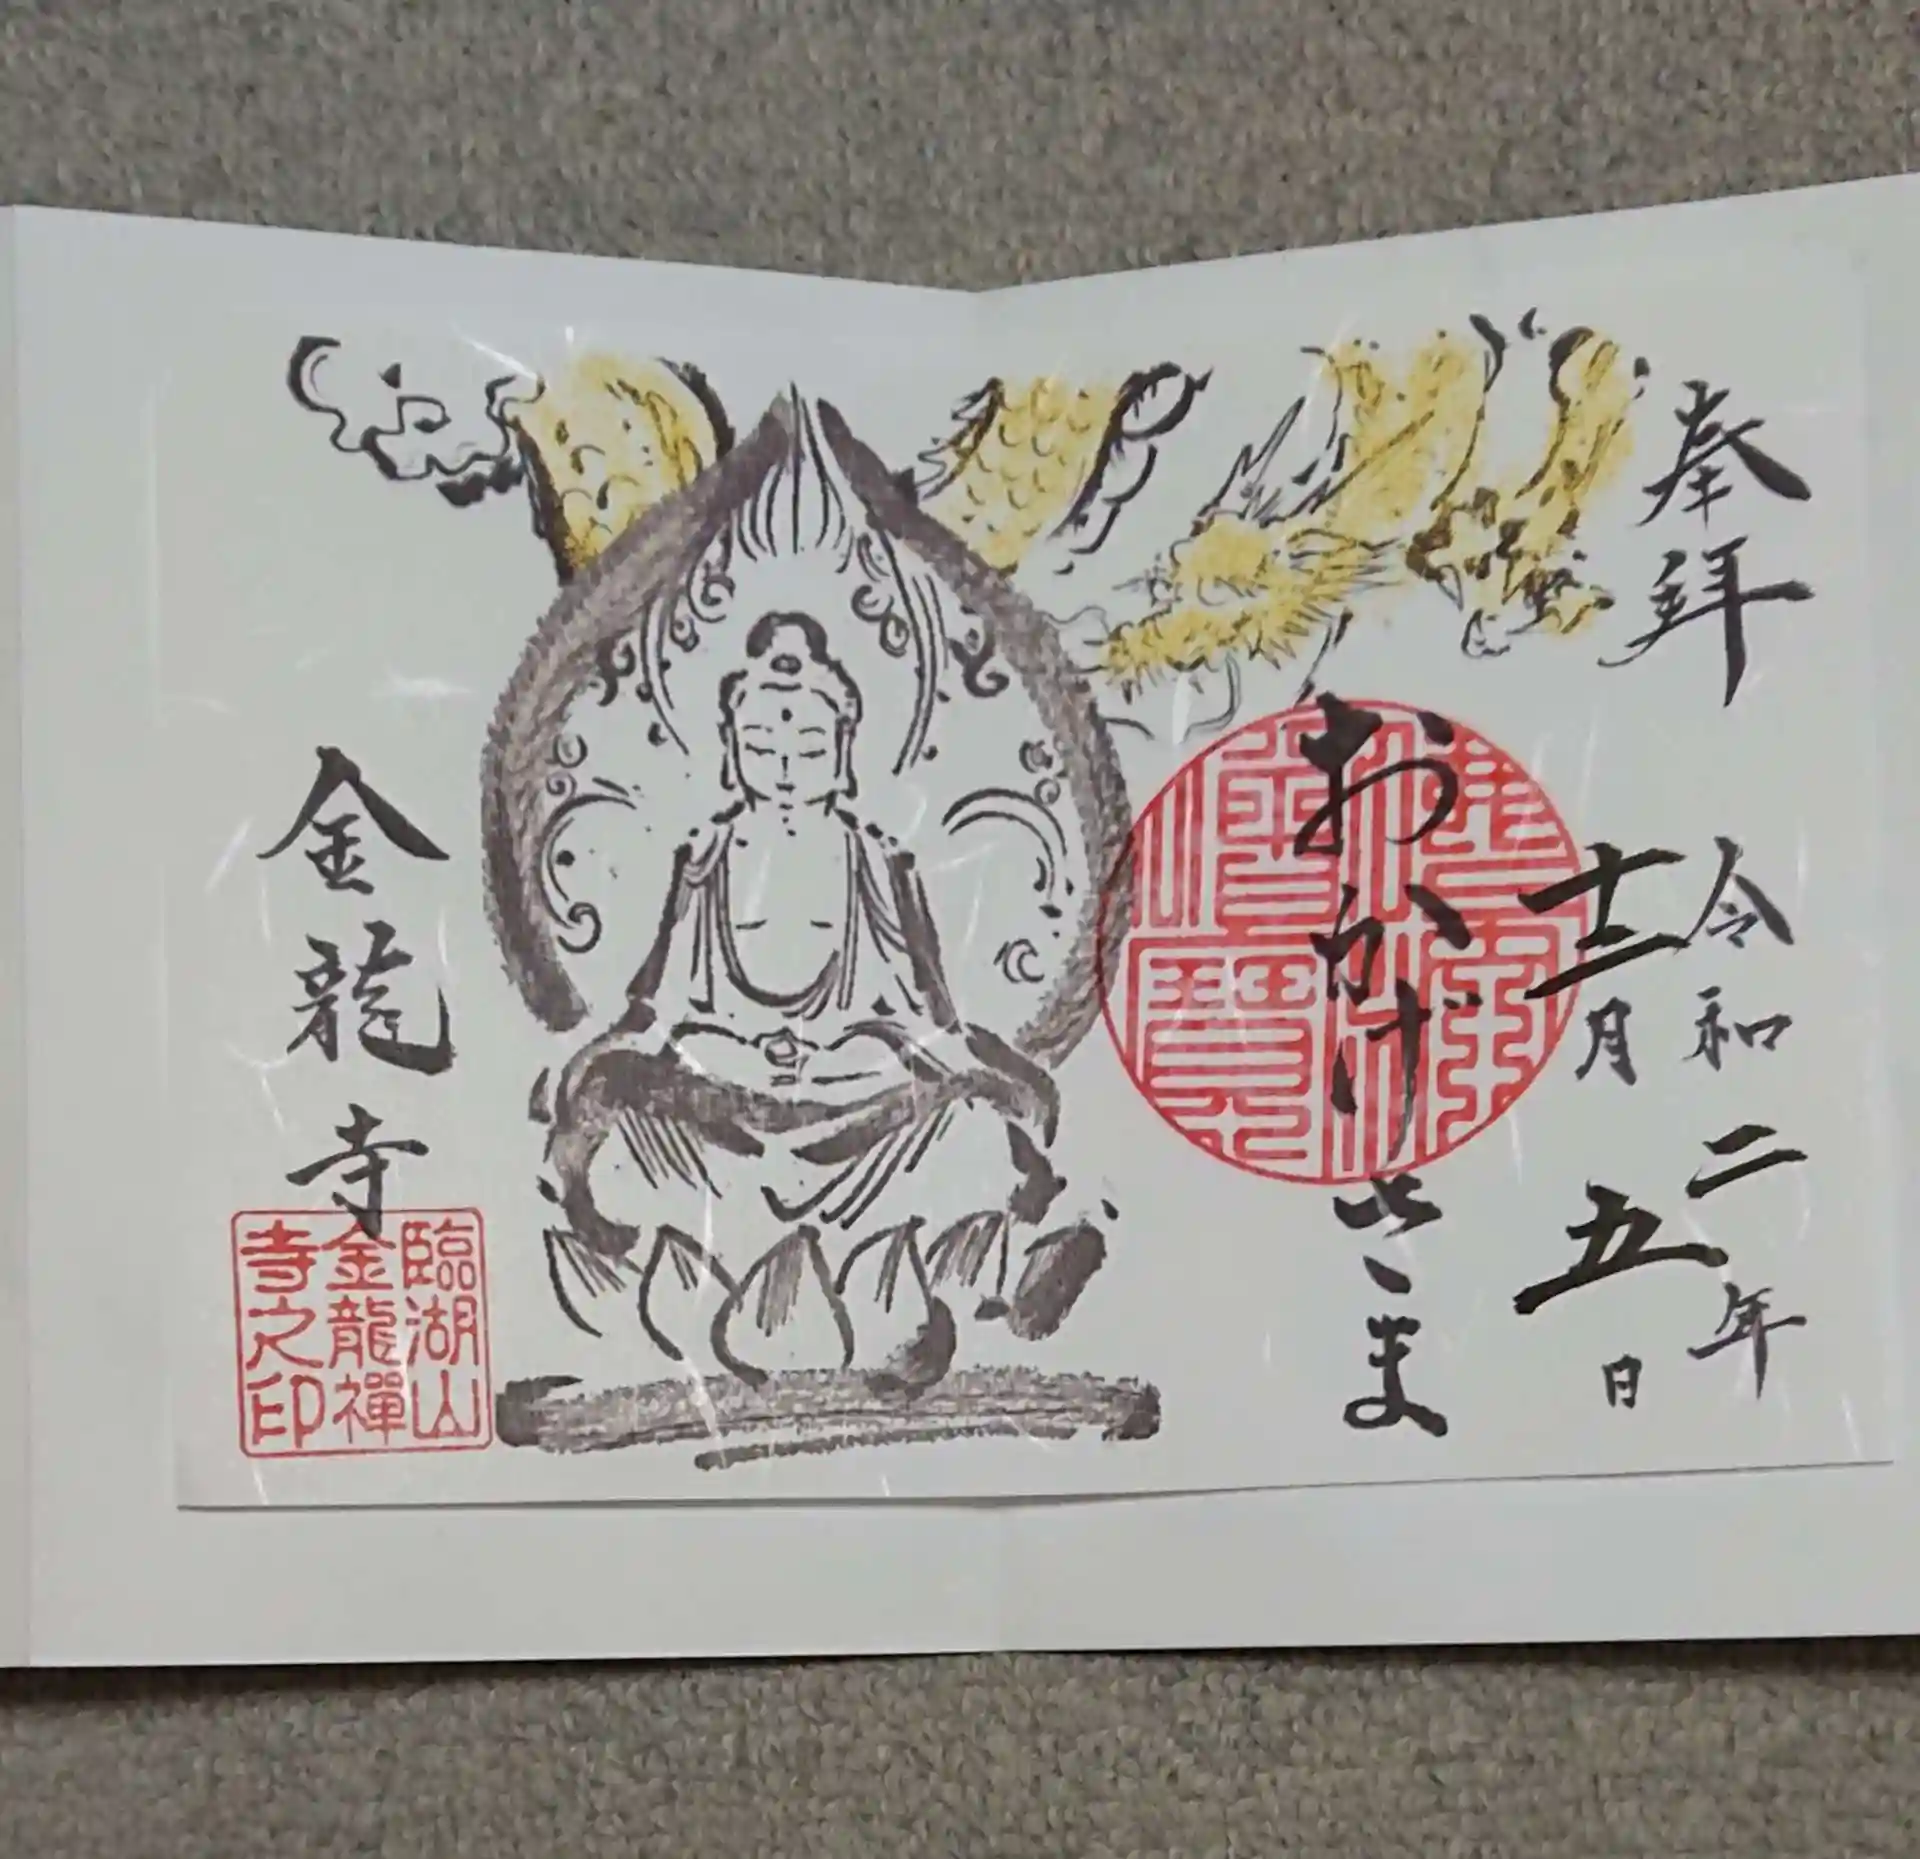 奉拝
令和二年
十二月五日
おかげさま
金龍寺
臨湖山
金龍禪
寺之印